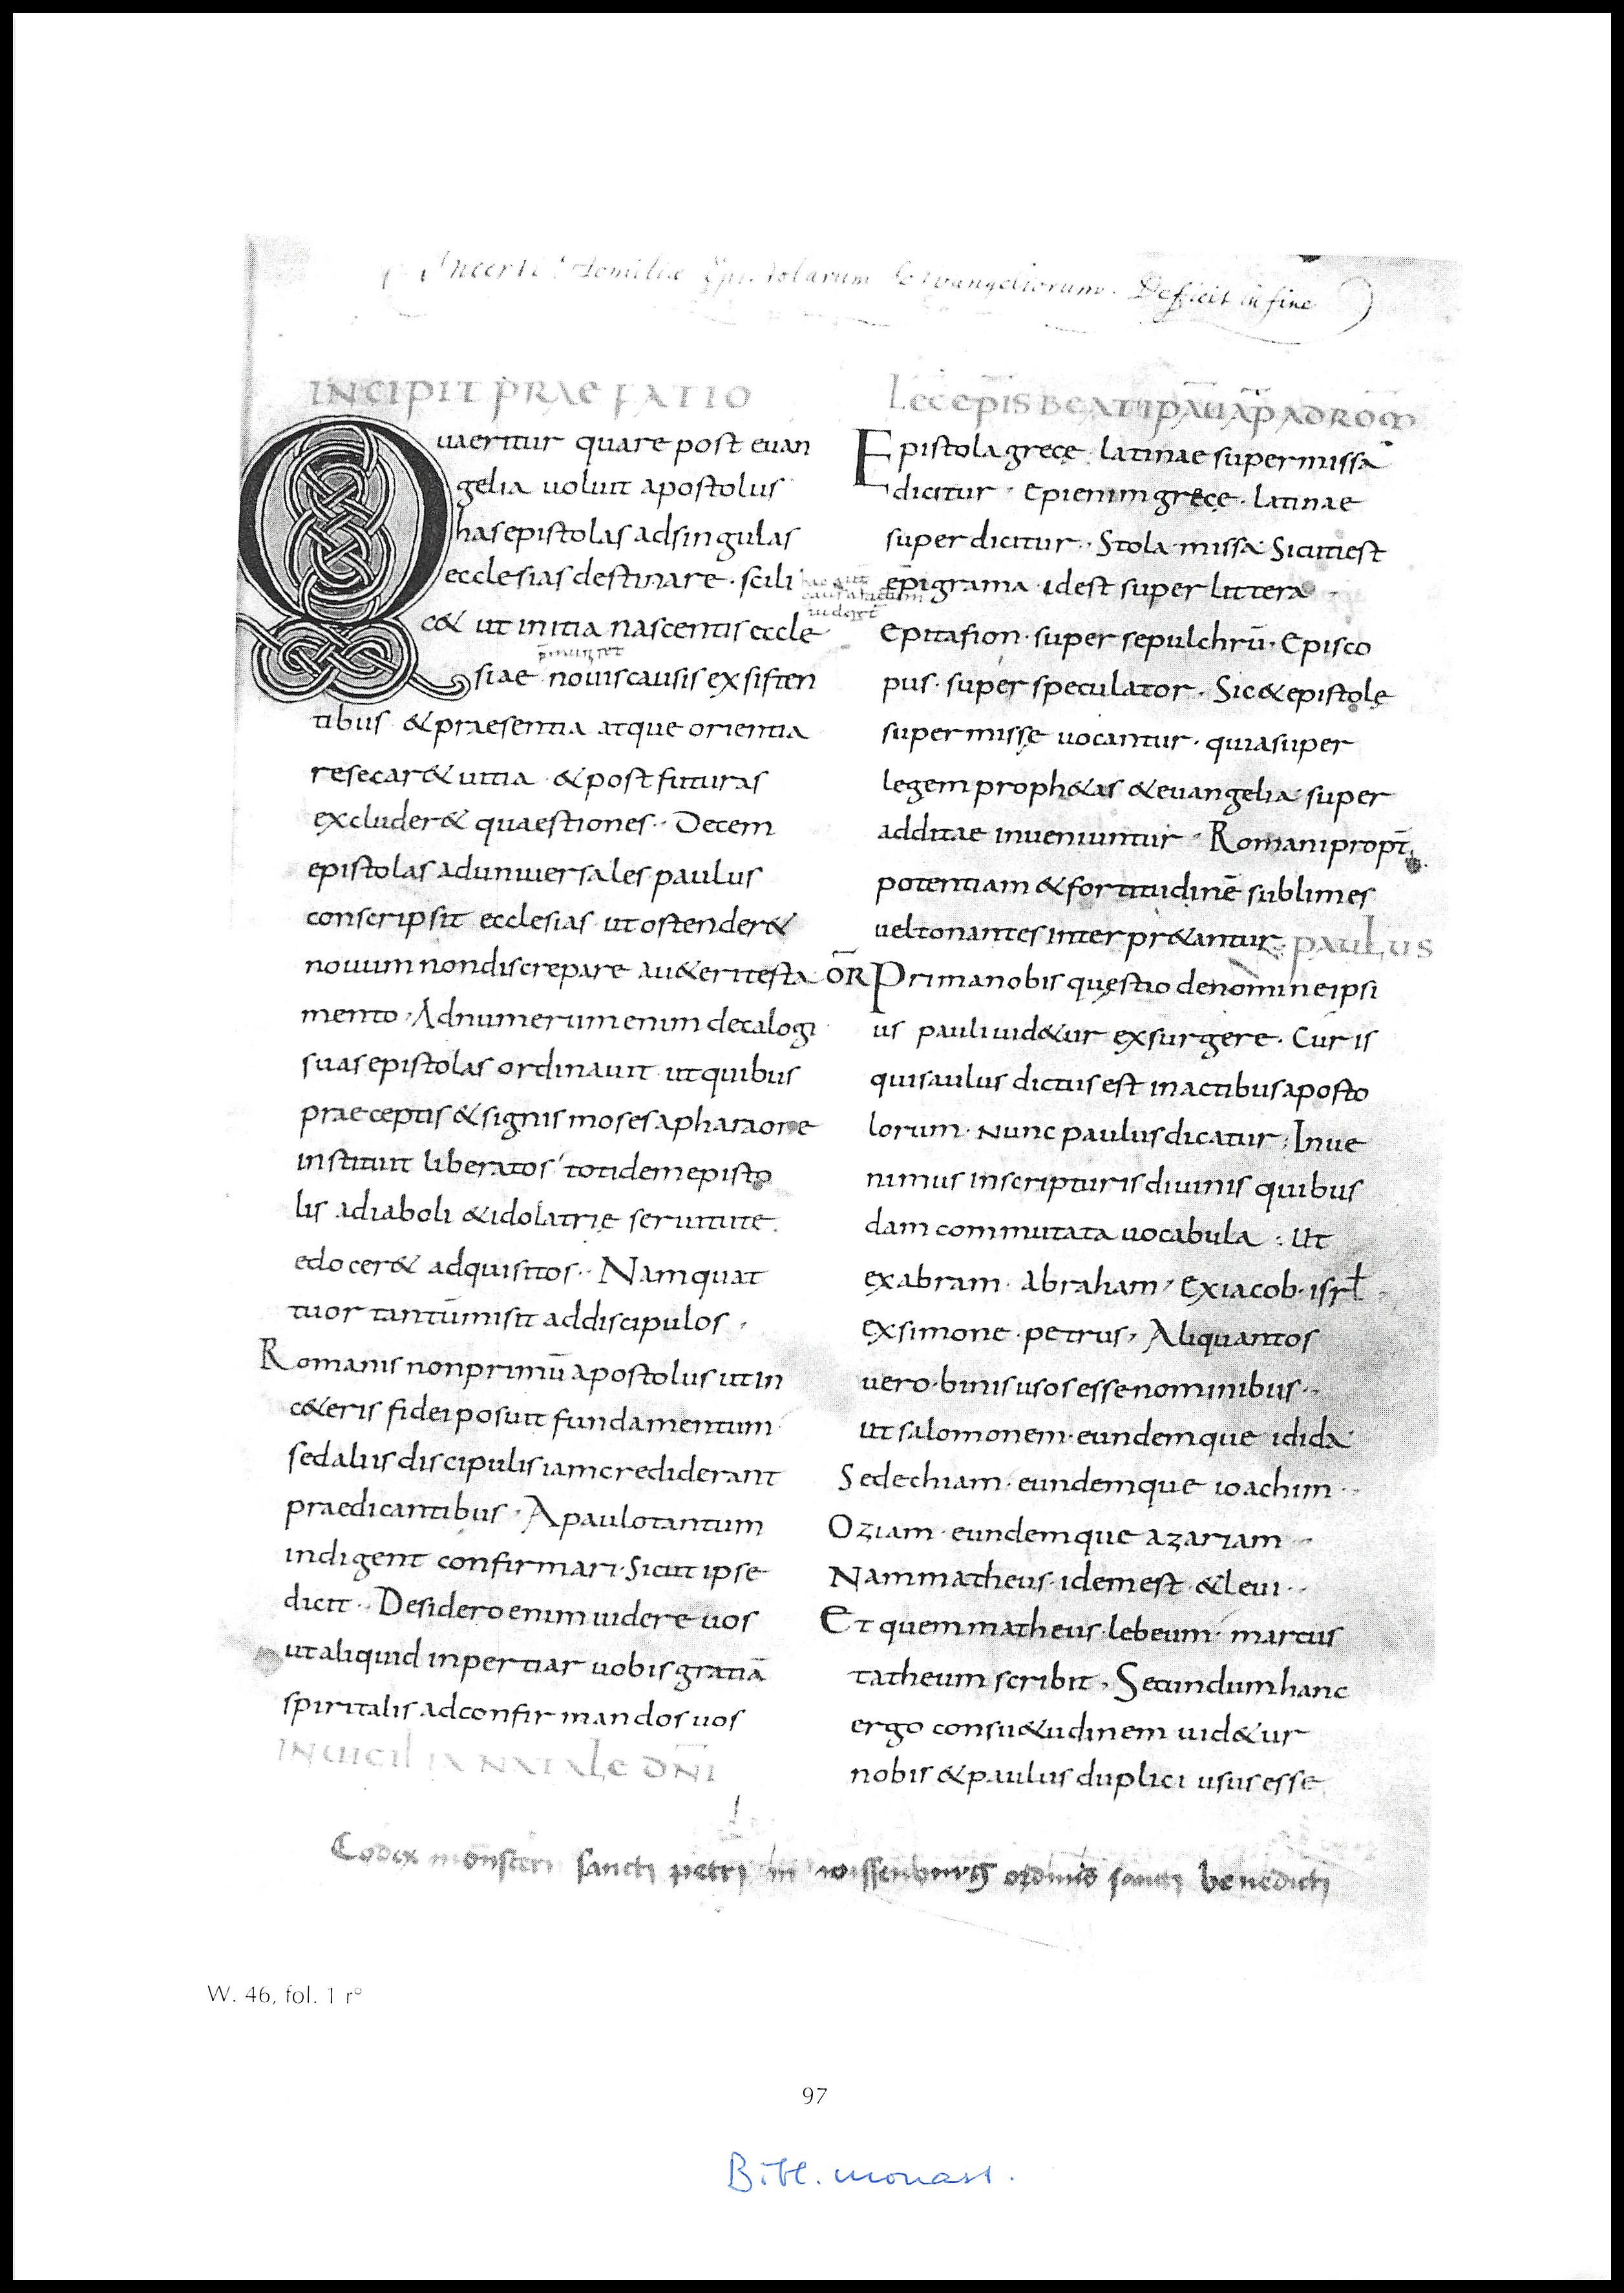 Incerti Homiliae Epistolarum & Evangeliorum. Deficit in fine
INCIPIT PRAEFATIO
Quaeritur quare post euan
gelia uoluit apostolus
has epistolas ad singulas
ecclesias destinare · scili
c& ut initia nascentis eccle
siae nouis causis exsisten
tibus & praesentia atque orientia
resecar& uitia · & post futuras
excluder& quaestiones·· Decem
epistolas ad uniuersales paulus
conscripsit ecclesias ut ostender&
nouum non discrepare a u&eri testa
mento · Ad numerum enim decalogi
suas epistolas ordinauit ut quibus
praeceptis & signis moses a pharaone
instituit liberatos totidem episto
lis a diaboli & idolatrię seruitute
edocer& adquisitos·· Nam quat
tuor tantū misit ad discipulos ·
Romanis non primū apostolus ut in
c&eris fidei posuit fundamentum
sed aliis discipulis iam crediderant
praedicantibus · A paulo tantum
indigent confirmari · Sicut ipse
dicit·· Desidero enim uidere uos
ut aliquid inpertiar uobis gratiā
spiritalis ad confirmandos uos
IN UIGILIA NATALE DN̄I
LEC EPIS BEATI PAULI AP AD ROM
Epistola gręcę · latinae supermissa
dicitur · Epi enim gręcę · latinae
super dicitur·· Stola missa Sicuti est
ep̄igrama · id est super littera
epitafion · super sepulchrū · Episco
pus · super speculator · Sic & epistolę
supermissę uocantur · quia super
legem proph&as & euangelia super
additae inueniuntur · Romani propt̄
potentiam & fortitudinē sublimes
uel tonantes interpr&antur · PAULUS
ŌR Prima nobis quęstio de nomine ipsi
us pauli uid&ur exsurgere · Cur is
qui saulus dictus est in actibus aposto
lorum · Nunc paulus dicatur ; Inue
nimus in scripturis diuinis quibus
dam commutata uocabula : Ut
ex abram · abraham · Ex iacob · isrł
ex simone · petrus · Aliquantos
uero · binis usos esse nominibus··
ut salomonem · eundemque idida
Sedechiam · eundemque ioachim··
Oziam · eundemque azariam··
Nam matheus · idem est · & leui··
Et quem matheus · lebeum · marcus
tatheum scribit · Secundum hanc
ergo consu&udinem uid&ur
nobis & paulus duplici usus esse
Codex monsterii sancti petri in wissenburg ordinis sancti benedicti
W. 46, fol. 1 r°
97
Bibl. monast.